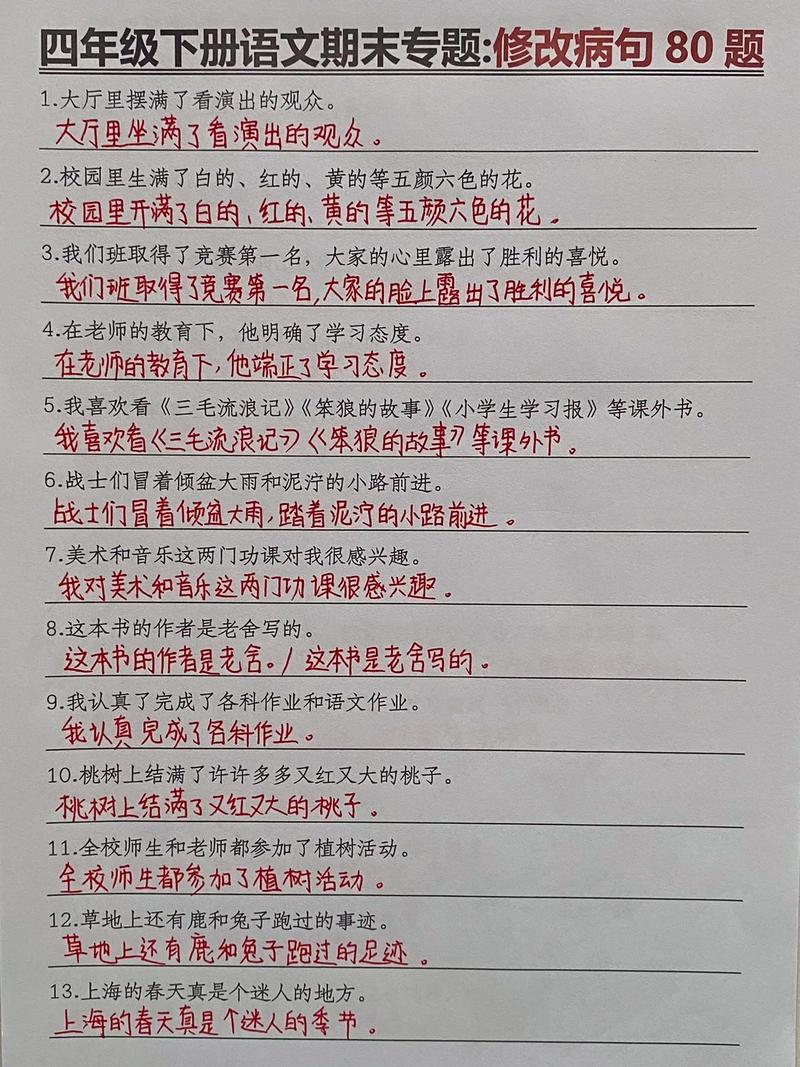 四年级下册语文期末专题:修改病句 80 题
1.大厅里摆满了看演出的观众。
大厅里坐满了看演出的观众。
2.校园里生满了白的、红的、黄的等五颜六色的花。
校园里开满了白的、红的、黄的等五颜六色的花。
3.我们班取得了竞赛第一名，大家的心里露出了胜利的喜悦。
我们班取得了竞赛第一名,大家的脸上露出了胜利的喜悦。
4.在老师的教育下，他明确了学习态度。
在老师的教育下,他端正了学习态度。
5.我喜欢看《三毛流浪记》《笨狼的故事》《小学生学习报》等课外书。
我喜欢看《三毛流浪记》《笨狼的故事》等课外书。
6.战士们冒着倾盆大雨和泥泞的小路前进。
战士们冒着倾盆大雨,踏着泥泞的小路前进。
7.美术和音乐这两门功课对我很感兴趣。
我对美术和音乐这两门功课很感兴趣。
8.这本书的作者是老舍写的。
这本书的作者是老舍。/这本书是老舍写的。
9.我认真了完成了各科作业和语文作业。
我认真完成了各科作业。
10.桃树上结满了许许多多又红又大的桃子。
桃树上结满了又红又大的桃子。
11.全校师生和老师都参加了植树活动。
全校师生都参加了植树活动。
12.草地上还有鹿和兔子跑过的事迹。
草地上还有鹿和兔子跑过的足迹。
13.上海的春天真是个迷人的地方。
上海的春天真是个迷人的季节。